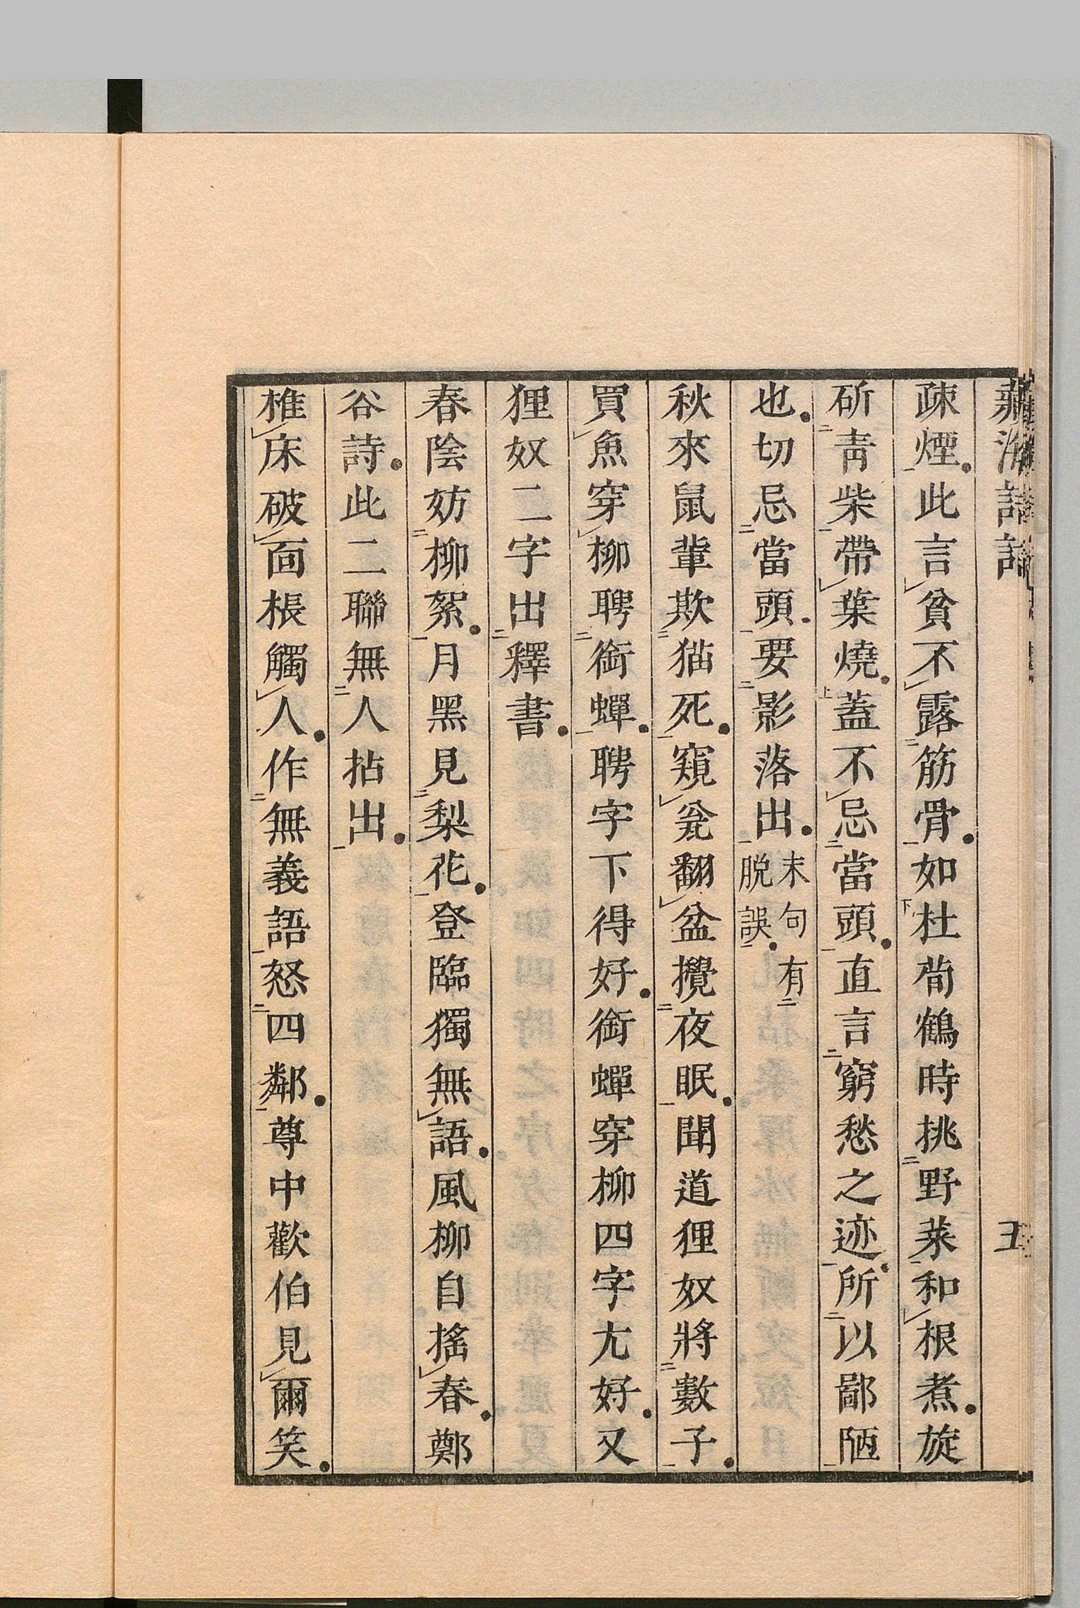 疎煙此言貧不露筋骨如杜荀鶴時挑野菜和根煮旋
斫青柴帶葉燒蓋不忌當頭直言窮愁之迹所以鄙陋
也切忌當頭要影落出末句有脫誤
秋來鼠輩欺猫死窺瓮翻盆攪夜眠聞道狸奴將數子
買魚穿柳聘銜蟬聘字下得好銜蟬穿柳四字尤好又
狸奴二字出釋書
春陰妨柳絮月黑見梨花登臨獨無語風柳自搖春鄭
谷詩此二聯無人拈出
椎床破面棖觸人作無義語怒四鄰尊中歡伯見爾笑